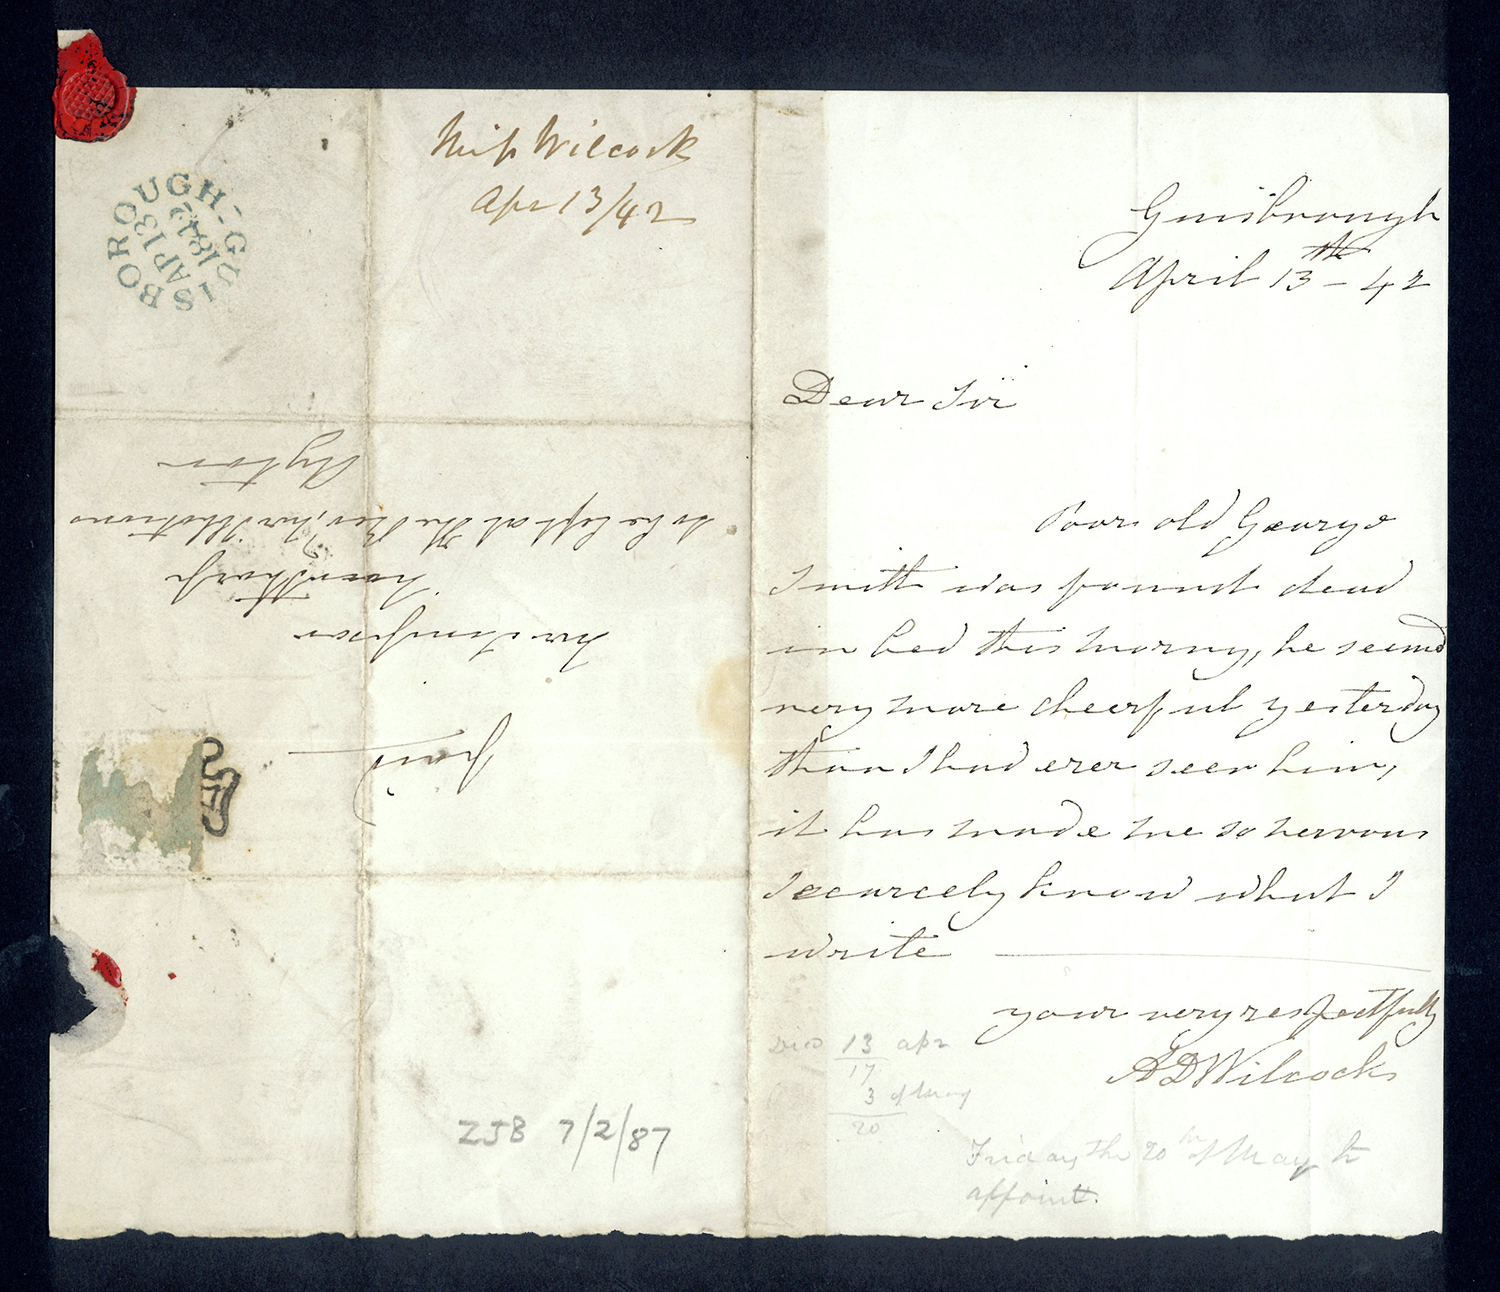 Miss Wilcock
Apr 13/42
GUISBOROUGH
AP 13
1842
Guisbrough
April 13th - 42
Dear Sir
Poor old George
Smith was found dead
in bed this morng, he seemd
very more cheerful yesterday
than I had ever seen him,
it has made me so nervous
I scarcely know what I
write
your very respectfully
A D Wilcock
Died 13 apr
17
3 of May
20
Friday the 20th of May to
appoint.
paid
Mr Simpson
Nunthorp
to be left at the Rev, Mr Ibbotsons
Ayton
ZJB 7/2/87